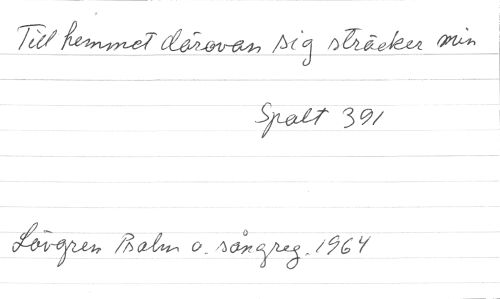 Till hemmet därovan sig sträcker min
Spalt 391
Lövgren Psalm o. sångreg. 1964